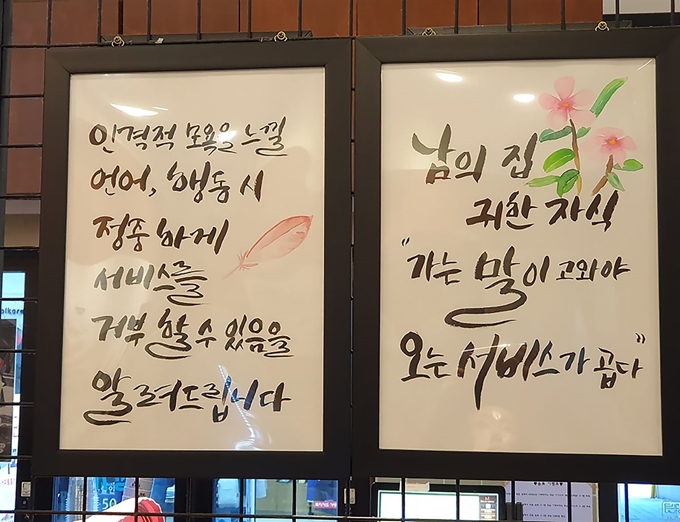 인격적 모욕을 느낄
언어, 행동 시
정중하게
서비스를
거부할 수 있음을
알려드립니다
남의 집
귀한 자식
"가는 말이 고와야
오는 서비스가 곱다"
50